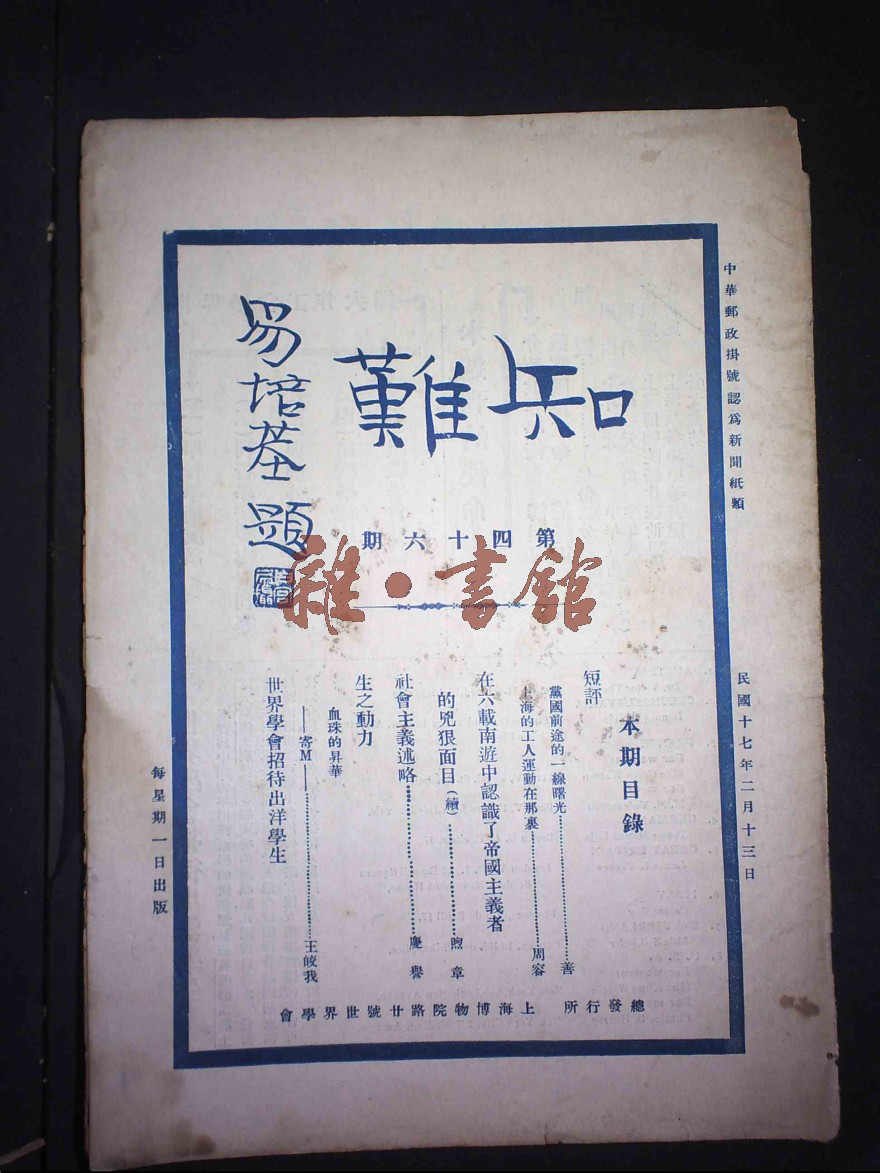 中華郵政掛號認爲新聞紙類
民國十七年二月十三日
知難
易培基題
第四十六期
雜·書館
本期目錄
短評
黨國前途的一線曙光………善
上海的工人運動在那裏………周容
在六載南遊中認識了帝國主義者
的兇狠面目(續)………煦章
社會主義述略………慶譽
生之動力
血珠的昇華
——寄M——………王皎我
世界學會招待出洋學生
總發行所 上海博物院路廿號世界學會
每星期一日出版